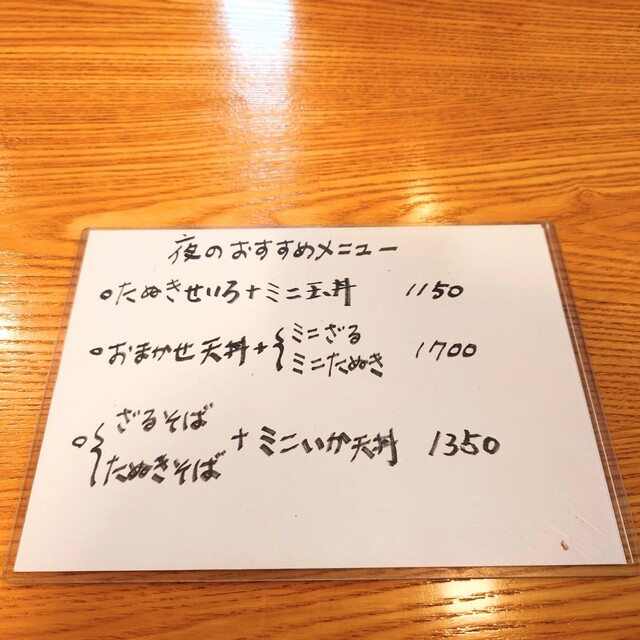 夜のおすすめメニュー
○たぬきせいろ+ミニ玉丼 1150
○おまかせ天丼+{ミニざる 1700
ミニたぬき
○{ざるそば +ミニいか天丼 1350
たぬきそば